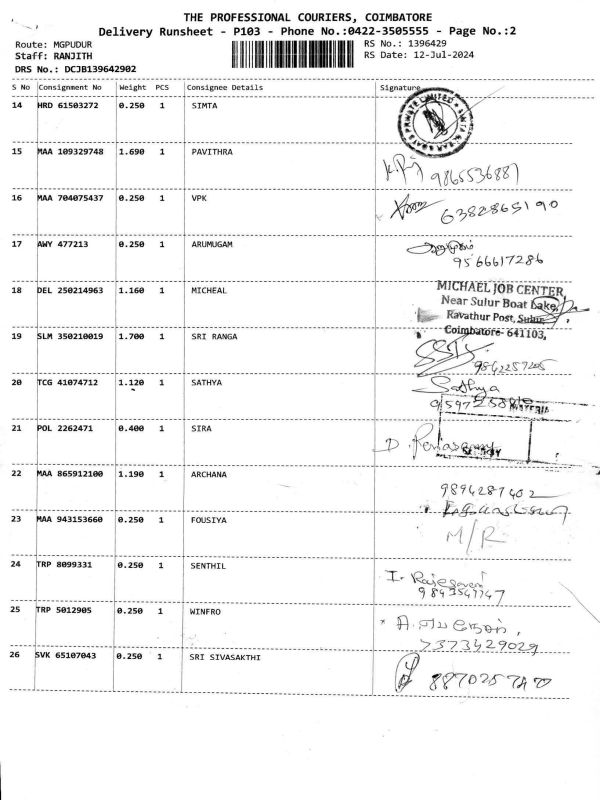 THE PROFESSIONAL COURIERS, COIMBATORE
Delivery Runsheet - P103 - Phone No.:0422-3505555 - Page No.:2
Route: MGPUDUR
RS No.: 1396429
Staff: RANJITH
RS Date: 12-Jul-2024
DRS No.: DCJB139642902
S No Consignment No Weight PCS Consignee Details Signature
14 HRD 61503272 0.250 1 SIMTA
15 MAA 109329748 1.690 1 PAVITHRA
9865536887
16 MAA 704075437 0.250 1 VPK
6382865190
17 AWY 477213 0.250 1 ARUMUGAM
ஆறுமுகம்
9566617286
18 DEL 250214963 1.160 1 MICHEAL
MICHAEL JOB CENTER
Near Sulur Boat Lake,
Ravathur Post, Sulur,
Coimbatore- 641103,
19 SLM 350210019 1.700 1 SRI RANGA
9842257205
20 TCG 41074712 1.120 1 SATHYA
Sathya
21 POL 2262471 0.400 1 SIRA
22 MAA 865912100 1.190 1 ARCHANA
9894287402
23 MAA 943153660 0.250 1 FOUSIYA
M/R
24 TRP 8099331 0.250 1 SENTHIL
25 TRP 5012905 0.250 1 WINFRO
7373429029
26 SVK 65107043 0.250 1 SRI SIVASAKTHI